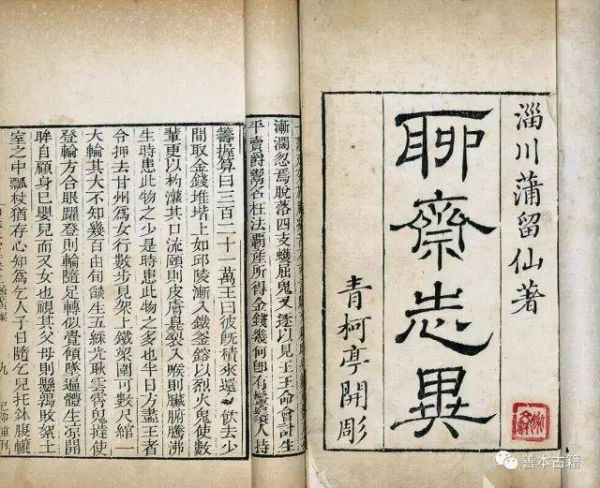 淄川蒲留仙著
聊齋志異
青柯亭開彫
漸濶忽焉脫落四支蠖屈鬼又逐以見王王命會計生
平賣爵鬻名枉法霸產所得金錢幾何卽有鬡鬚人持
籌握算曰三百二十一萬王曰彼旣積來還飲去少
間取金錢堆堦上如邱陵漸入鐵釜鎔以烈火鬼使數
輩更以杓灌其口流頤則皮膚臭裂入喉則臟腑騰沸
生時患此物之少是時患此物之多也半日方盡王者
令押去甘州爲女行數步見架上鐵梁圍可數尺綰一
大輪其大不知幾百由旬燄生五綵光耿雲霄鬼撻使
登輪方合眼躍登則輪隨足轉似覺傾墜遍體生涼開
眸自顧身已嬰兒而又女也視其父母則懸鶉敗絮土
室之中瓢杖猶存心知爲乞人子日隨乞兒托鉢腹轆
九
善本古籍